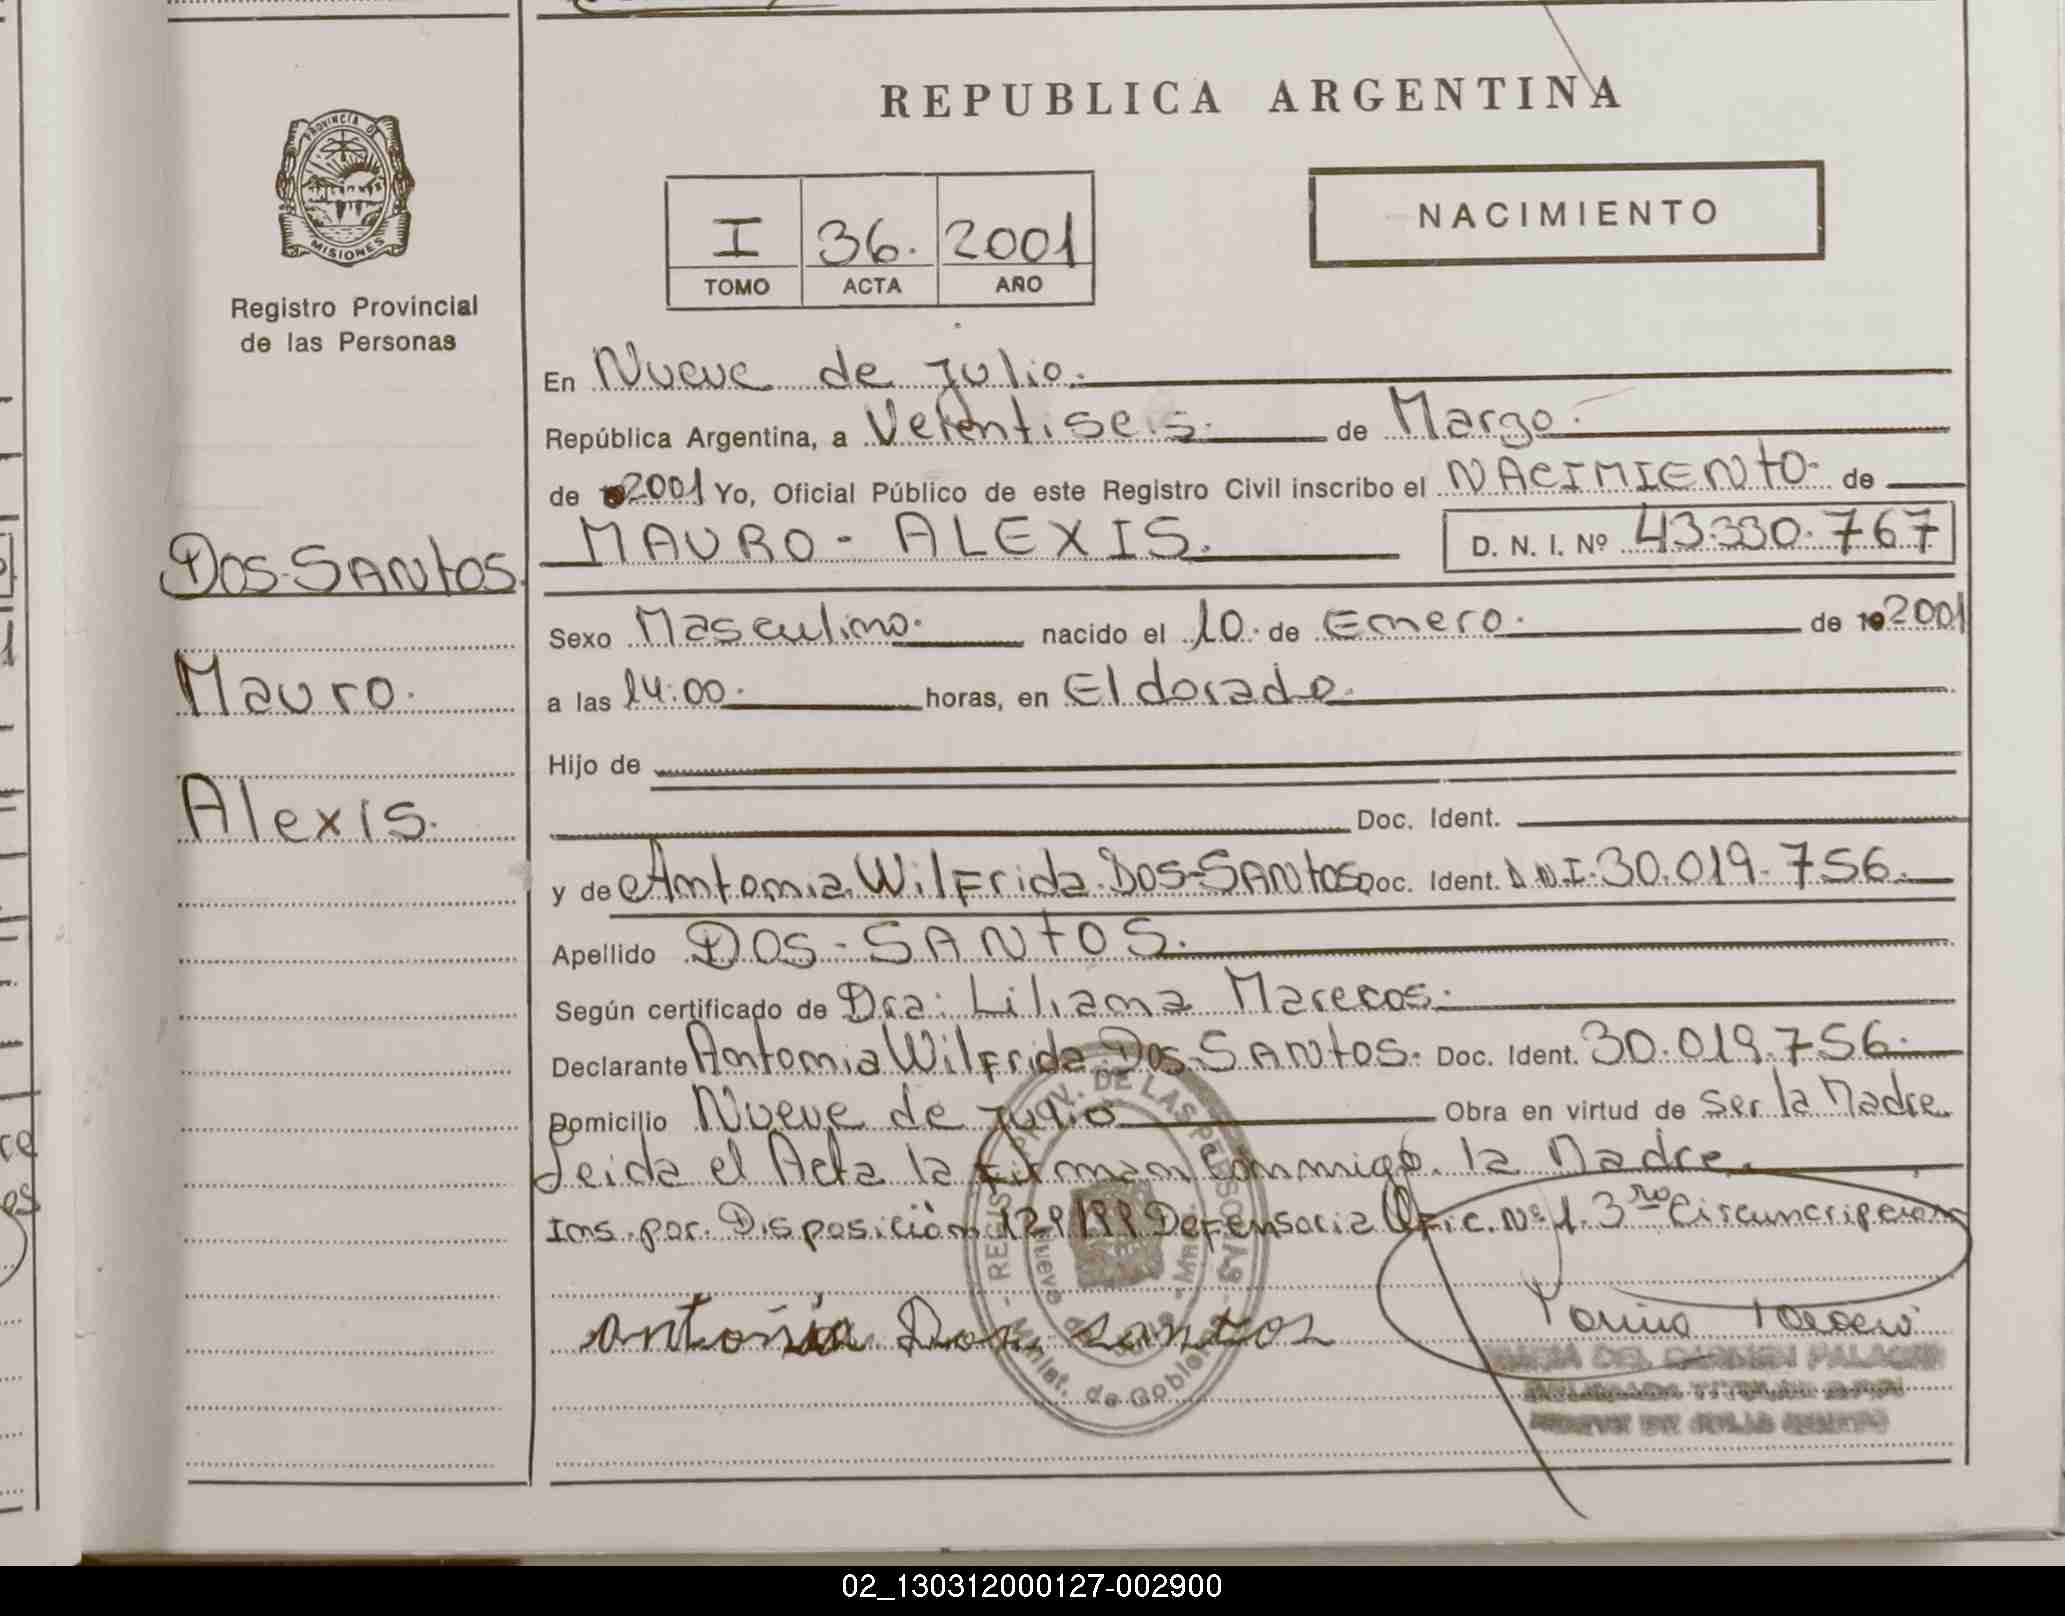 REPUBLICA ARGENTINA
PROVINCIA DE
MISIONES
Registro Provincial
de las Personas
I 36. 2001
TOMO ACTA AÑO
NACIMIENTO
En Nueve de julio.
República Argentina, a Veintiseis. de Marzo.
de 2001 Yo, Oficial Público de este Registro Civil inscribo el NACIMIENTO. de
MAURO - ALEXIS. D. N. I. Nº 43.330.767
DOS-SANTOS.
Sexo Masculino. nacido el 10. de Enero. de 2001
Mauro.
a las 14:00. horas, en Eldorado.
Hijo de
Alexis.
Doc. Ident.
y de Antonia Wilfrida DOS-SANTOS Doc. Ident. D.N.I. 30.019.756.
Apellido DOS-SANTOS.
Según certificado de Dra: Liliana Marecos.
Declarante Antonia Wilfrida Dos-SANTOS. Doc. Ident. 30.019.756.
Domicilio Nueve de julio Obra en virtud de Ser la Madre.
Leida el Acta la Firman Conmmigo. la Madre.
Ins. por. Disposición 129/99 Defensoria Ofic. Nº 1. 3ro Circuncripcion
REGISTRO PROV. DE LAS PERSONAS
Minist. de Gobierno
antonia Dos santos
MARIA DEL CARMEN
02_130312000127-002900